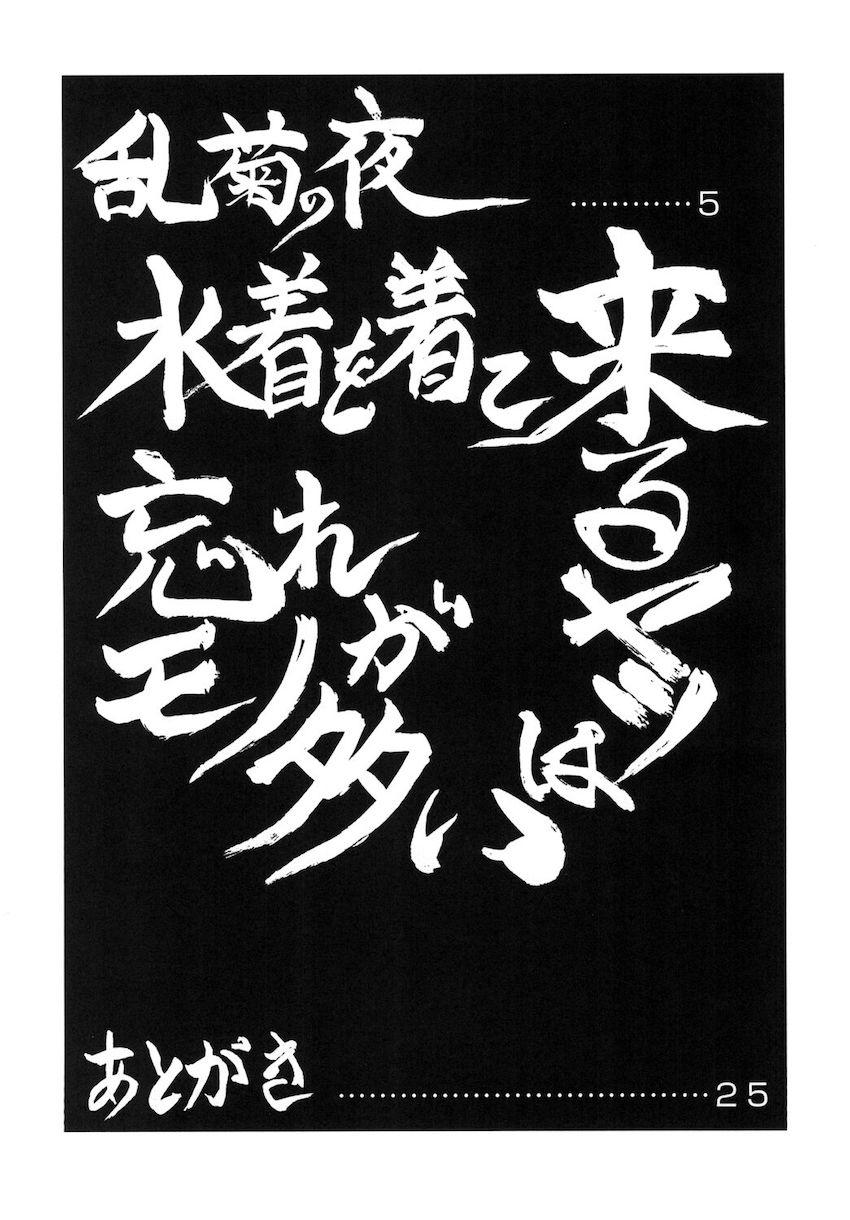 乱菊の夜 …………5
水着を着て来る
ヤツは
忘れ
モノが
多いっ
あとがき ……………………………25